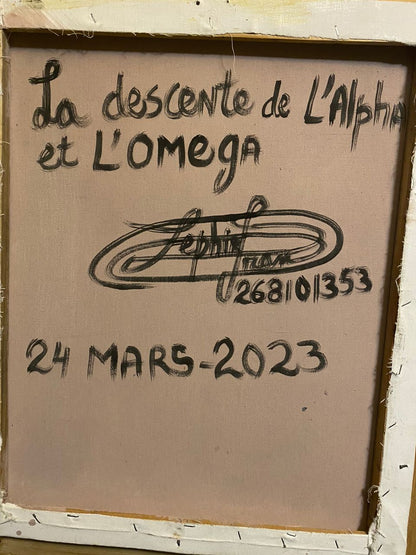 La descente de L'Alpha
et L'OMEGA
268101353
24 MARS-2023